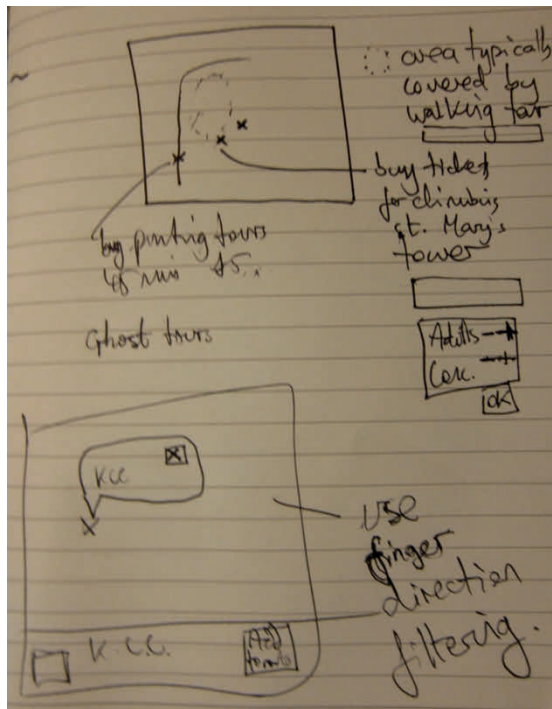 area typically
covered by
walking tour
buy tickets
for climbing
st. Mary's
tower
buy punting tours
45 min £5..
Ghost tours
Adults
Conc.
OK
K.C.C
use
finger
direction
filtering.
K.C.C.
Add